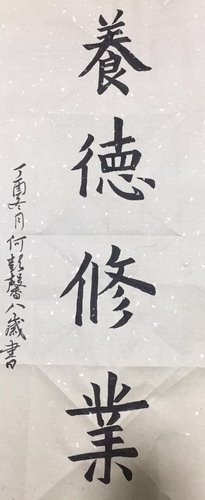 養德修業
丁酉冬月何彭馨八歲書